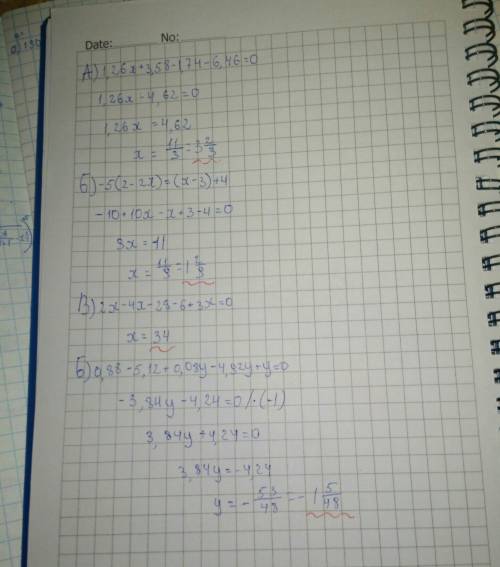 Date: No:
А) 1,26x+3,58-1,74-6,46=0
1,26x-4,62=0
1,26x=4,62
x= 11/3 = 3 2/3
Б) -5(2-2x)=(x-3)+4
-10+10x-x+3-4=0
9x=11
x= 11/9 = 1 2/9
В) 2x-4x-28-6+3x=0
x=34
Б) 0,88-5,12+0,08y-4,92y+y=0
-3,84y-4,24=0/·(-1)
3,84y+4,24=0
3,84y=-4,24
y=- 53/48 =- 1 5/48